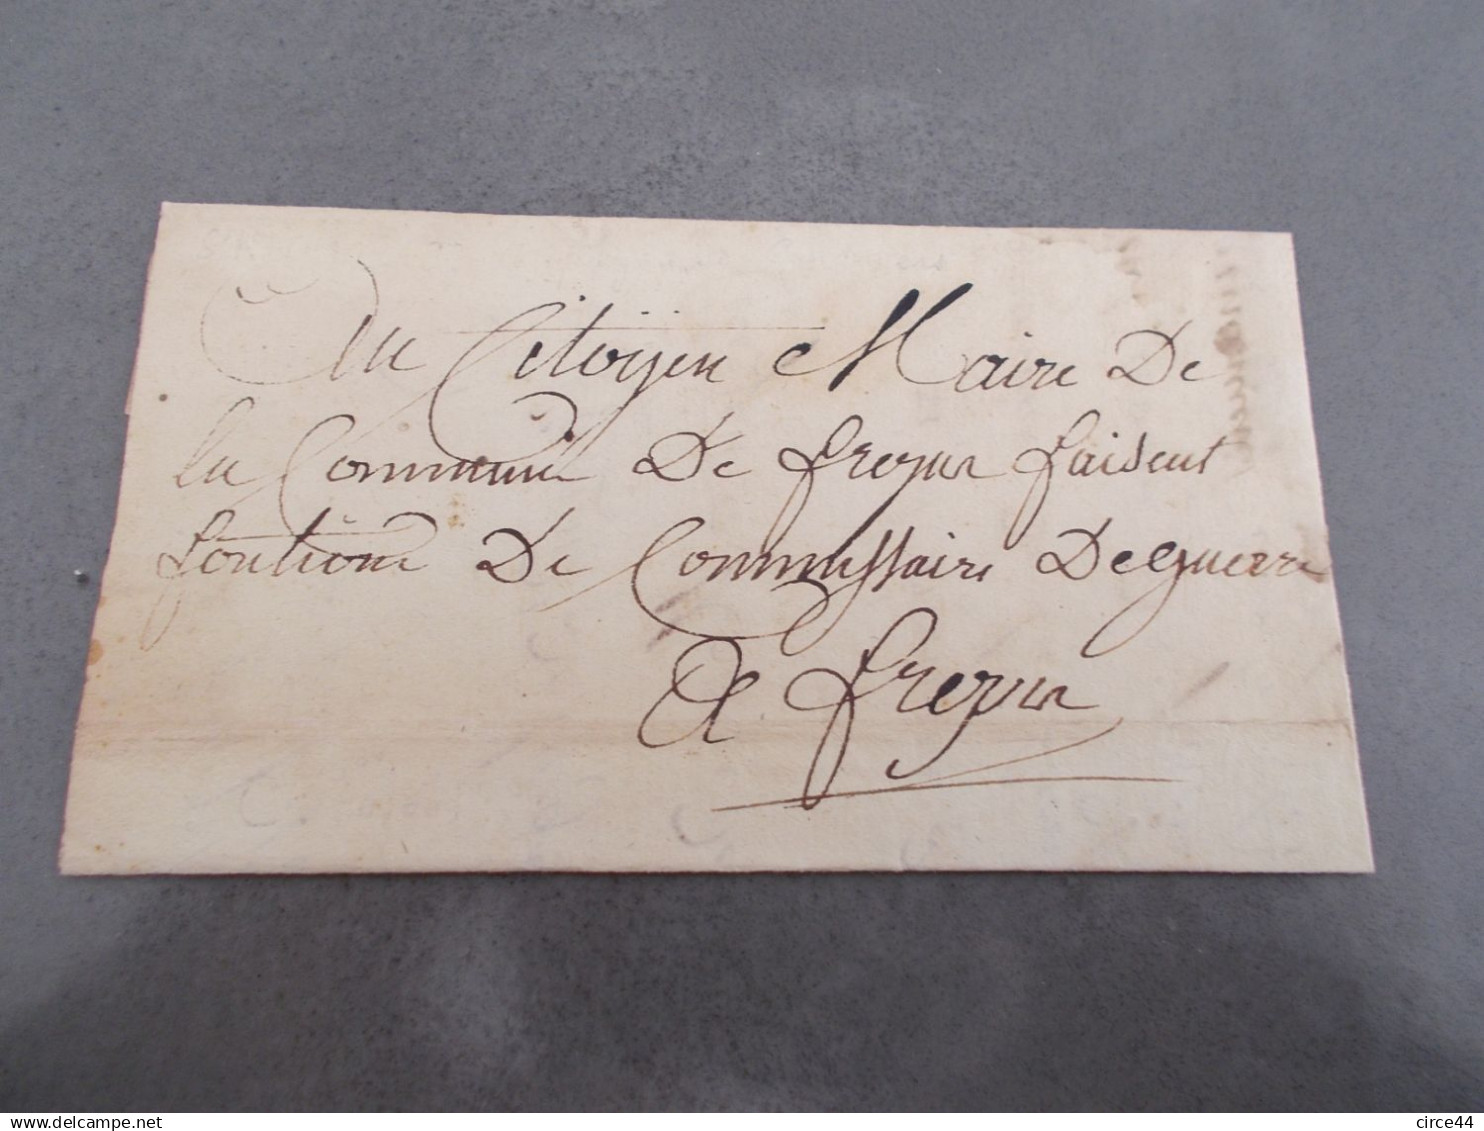 Au Citoyen Maire De
la Commune De frejus faisent
fontions De Commissaire De guerre
A frejus
circe44